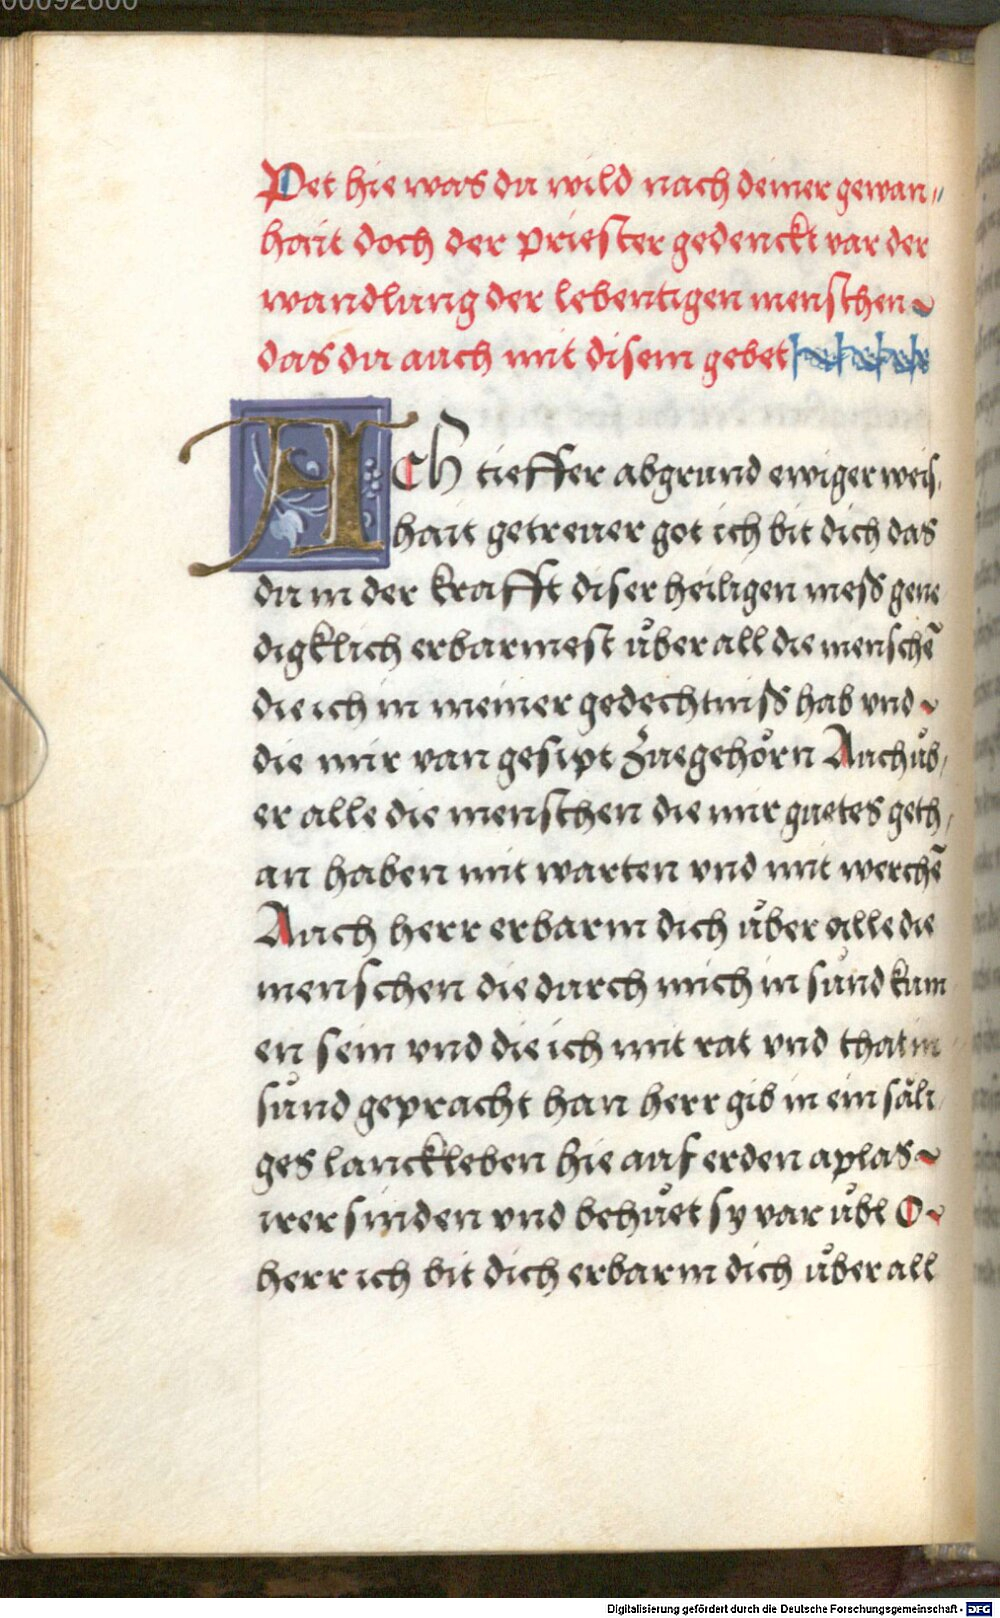 00092600
Pet hie was du wild nach deiner gewan„
hait doch der priester gedenckt var der
wandlung der lebentigen menschen
das du auch mit disem gebet
ACh tieffer abgrund ewiger weis,
hait getrewer got ich bit dich das
du in der krafft diser heiligen mess gene
digklich erbarmest uͤber all die menschē
die ich in meiner gedechtniss hab vnd
die mir van gesipt Zuegehoͤrn Auch uͤb,
er alle die menschen die mir guetes geth,
an haben mit warten vnd mit werchē
Auch herr erbarm dich uͤber alle die
menschen die durch mich in suͤnd kum
en sein vnd die ich mit rat vnd that in
suͤnd gepracht han herr gib in ein saͤli
ges lanckleben hie auf erden aplas
irer sinden vnd behuͤet sy var uͤbl O
herr ich bit dich erbarm dich uͤber all
Digitalisierung gefördert durch die Deutsche Forschungsgemeinschaft - DFG